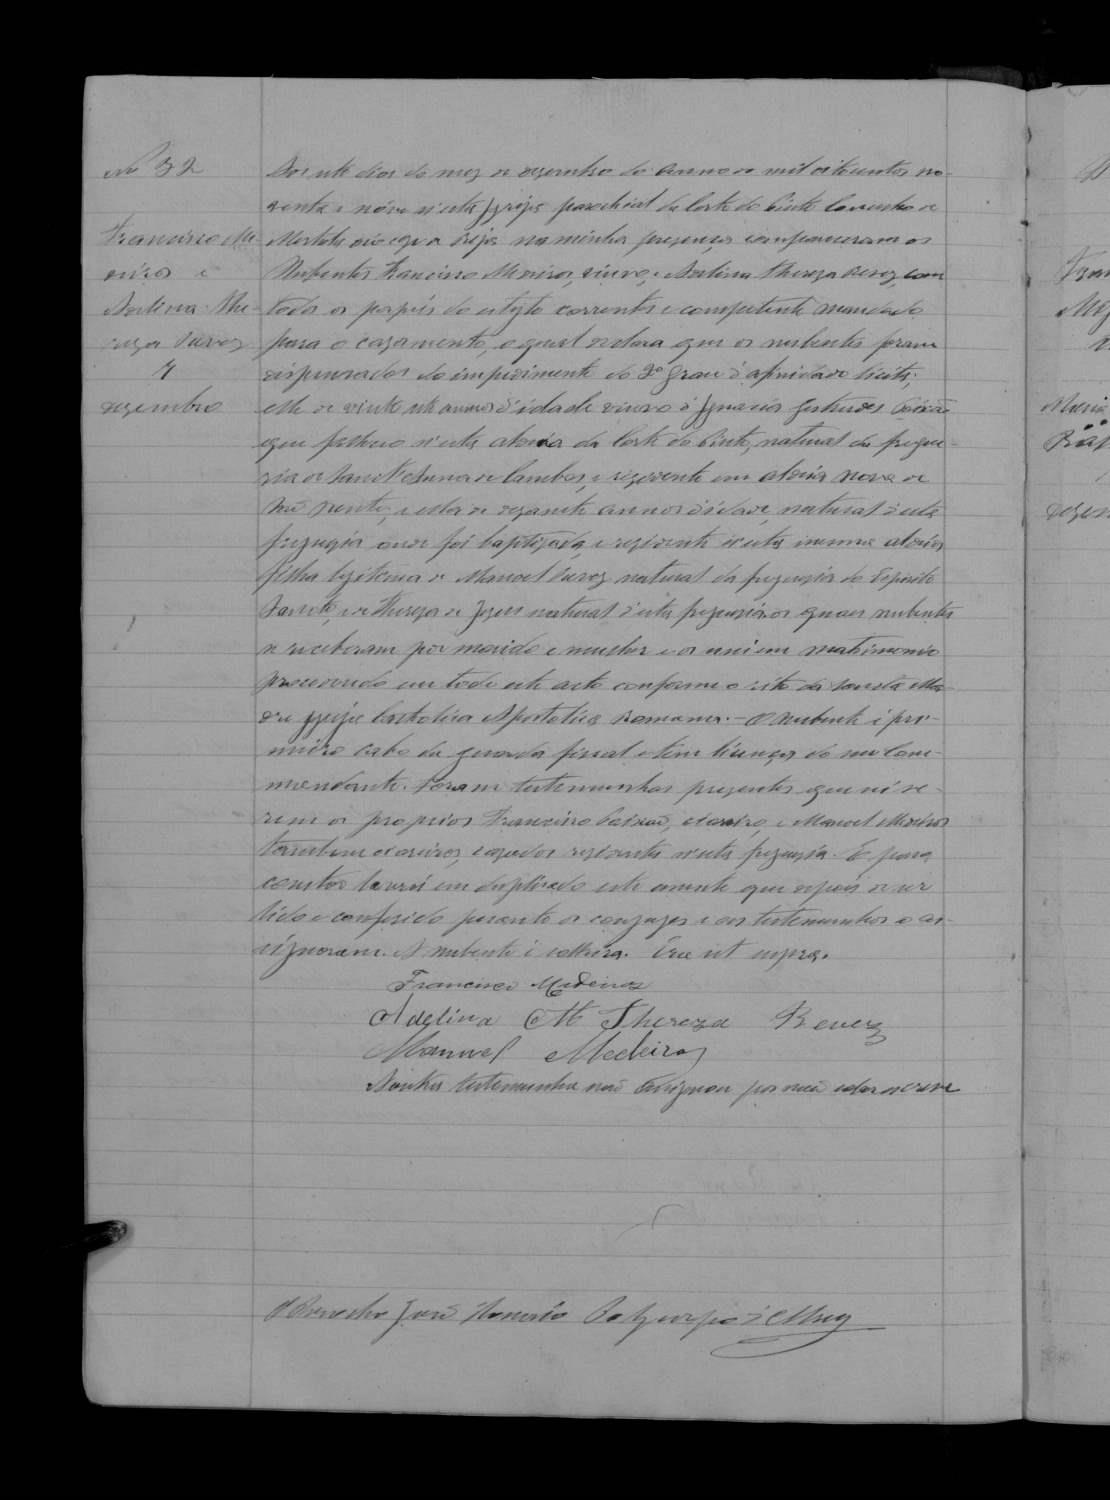 Nº 32
Francisco Me-
deiros e
Adelina The-
reza Revez
7
dezembro
Aos sete dias do mez de dezembro do anno de mil oitocentos no-
venta e nove n'esta Igreja parochial da Corte do Pinto Concelho de
Mertola diocese de Beja na minha presença compareceram os
Nubentes Francisco Medeiros, viuvo, e Adelina Thereza Revez, com
todos os papeis do estylo correntes e competente mandado
para o casamento, o qual declara que os nubentes foram
dispensados do impedimento do 2º grau d'afinidade licita;
elle de vinte sete annos d'idade viuvo d'Ignacia Gertrudes
que falleceu n'esta aldeia da Corte do Pinto, natural da fregue-
zia de Sant'Anna de Cambas, e rezidente em aldeia nova de
São Bento, e ella de dezasete annos d'idade, natural d'esta
freguezia onde foi baptizada, e rezidente n'esta mesma aldeia
filha legitima de Manoel Revez natural da freguezia do Espirito
Santo, e de Thereza de Jesus natural d'esta freguezia os quaes nubentes
se receberam por marido e mulher e os uni em matrimonio
procedendo em todo este acto conforme o rito da Santa Ma-
dre Igreja Catholica Apostolica Romana. - O nubente é pri-
meiro cabo da guarda fiscal e tem licença do seu Com-
mandante. Foram testemunhas presentes que sei se-
rem os proprios Francisco Caixão, e Manoel Medeiros
tambem casados rezidentes n'esta freguezia. E para
constar lavrei em duplicado este assento que depois de ser
lido e conferido perante os conjuges e as testemunhas o as-
signaram. A nubente é solteira. Era ut supra.
Francisco Medeiros
Adelina M Thereza Revez
Manuel Medeiros
A outra testemunha não assignou por não saber escrever
O Parocho José